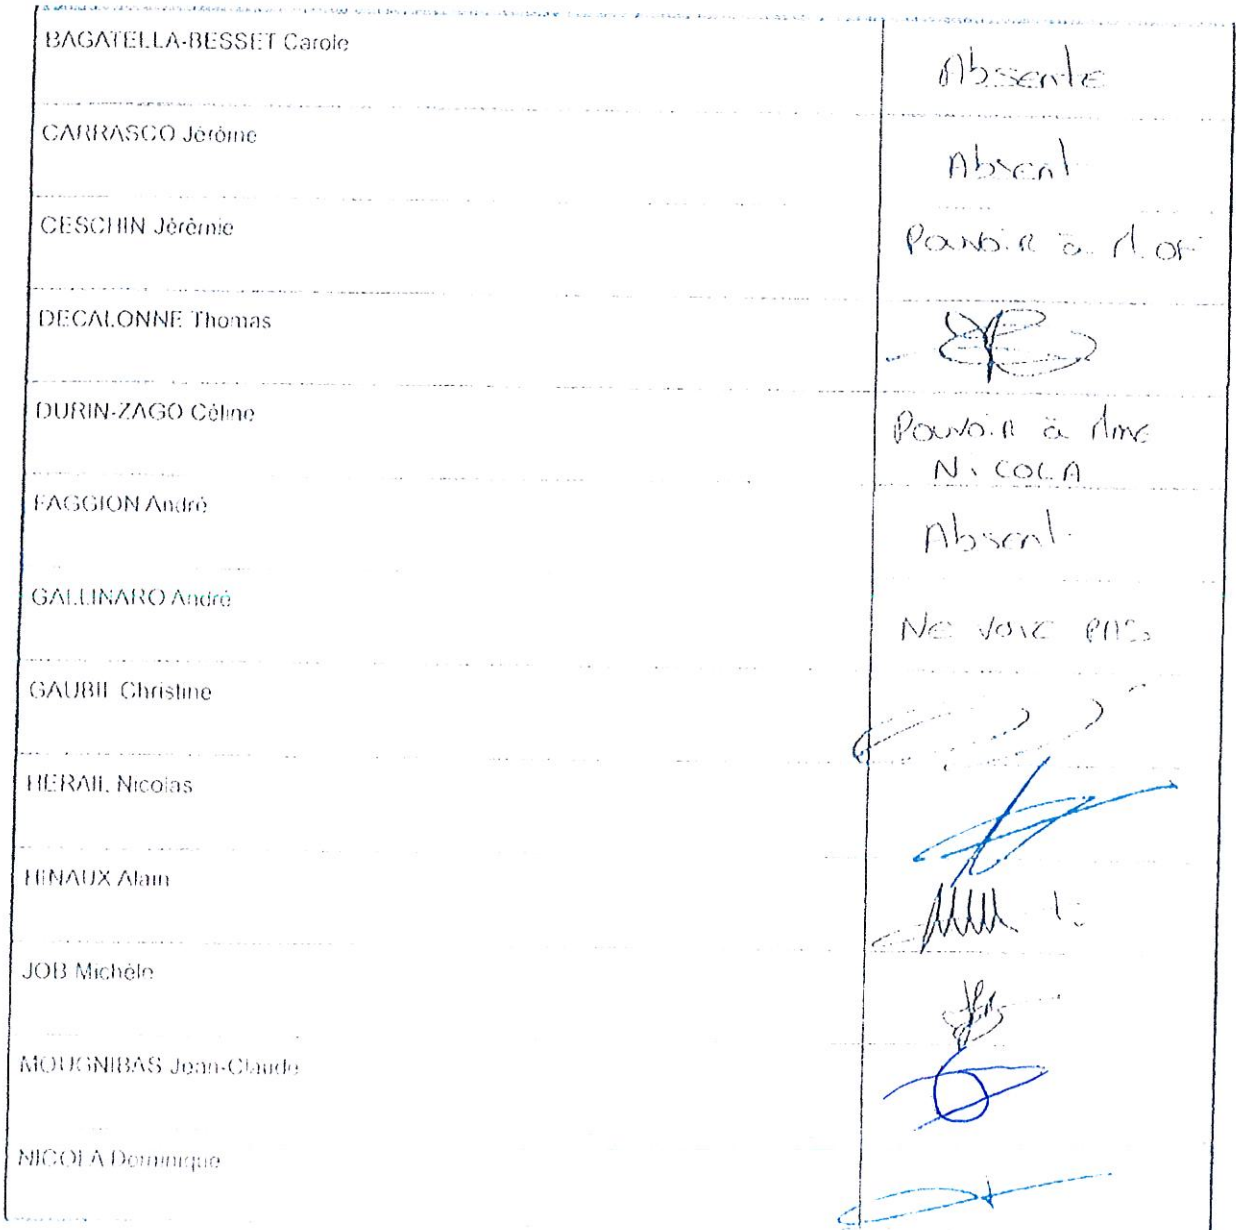 BAGATELLA-BESSET Carole
Absente
CARRASCO Jérôme
Absent
CESCHIN Jérémie
Pouvoir à M. OF
DECALONNE Thomas
DURIN-ZAGO Céline
Pouvoir à Mme
NICOLA
FAGGION André
Absent
GALLINARO André
NE VOTE PAS
GAUBIL Christine
HERAIL Nicolas
HINAUX Alain
JOB Michèle
MOUGNIBAS Jean-Claude
NICOLA Dominique